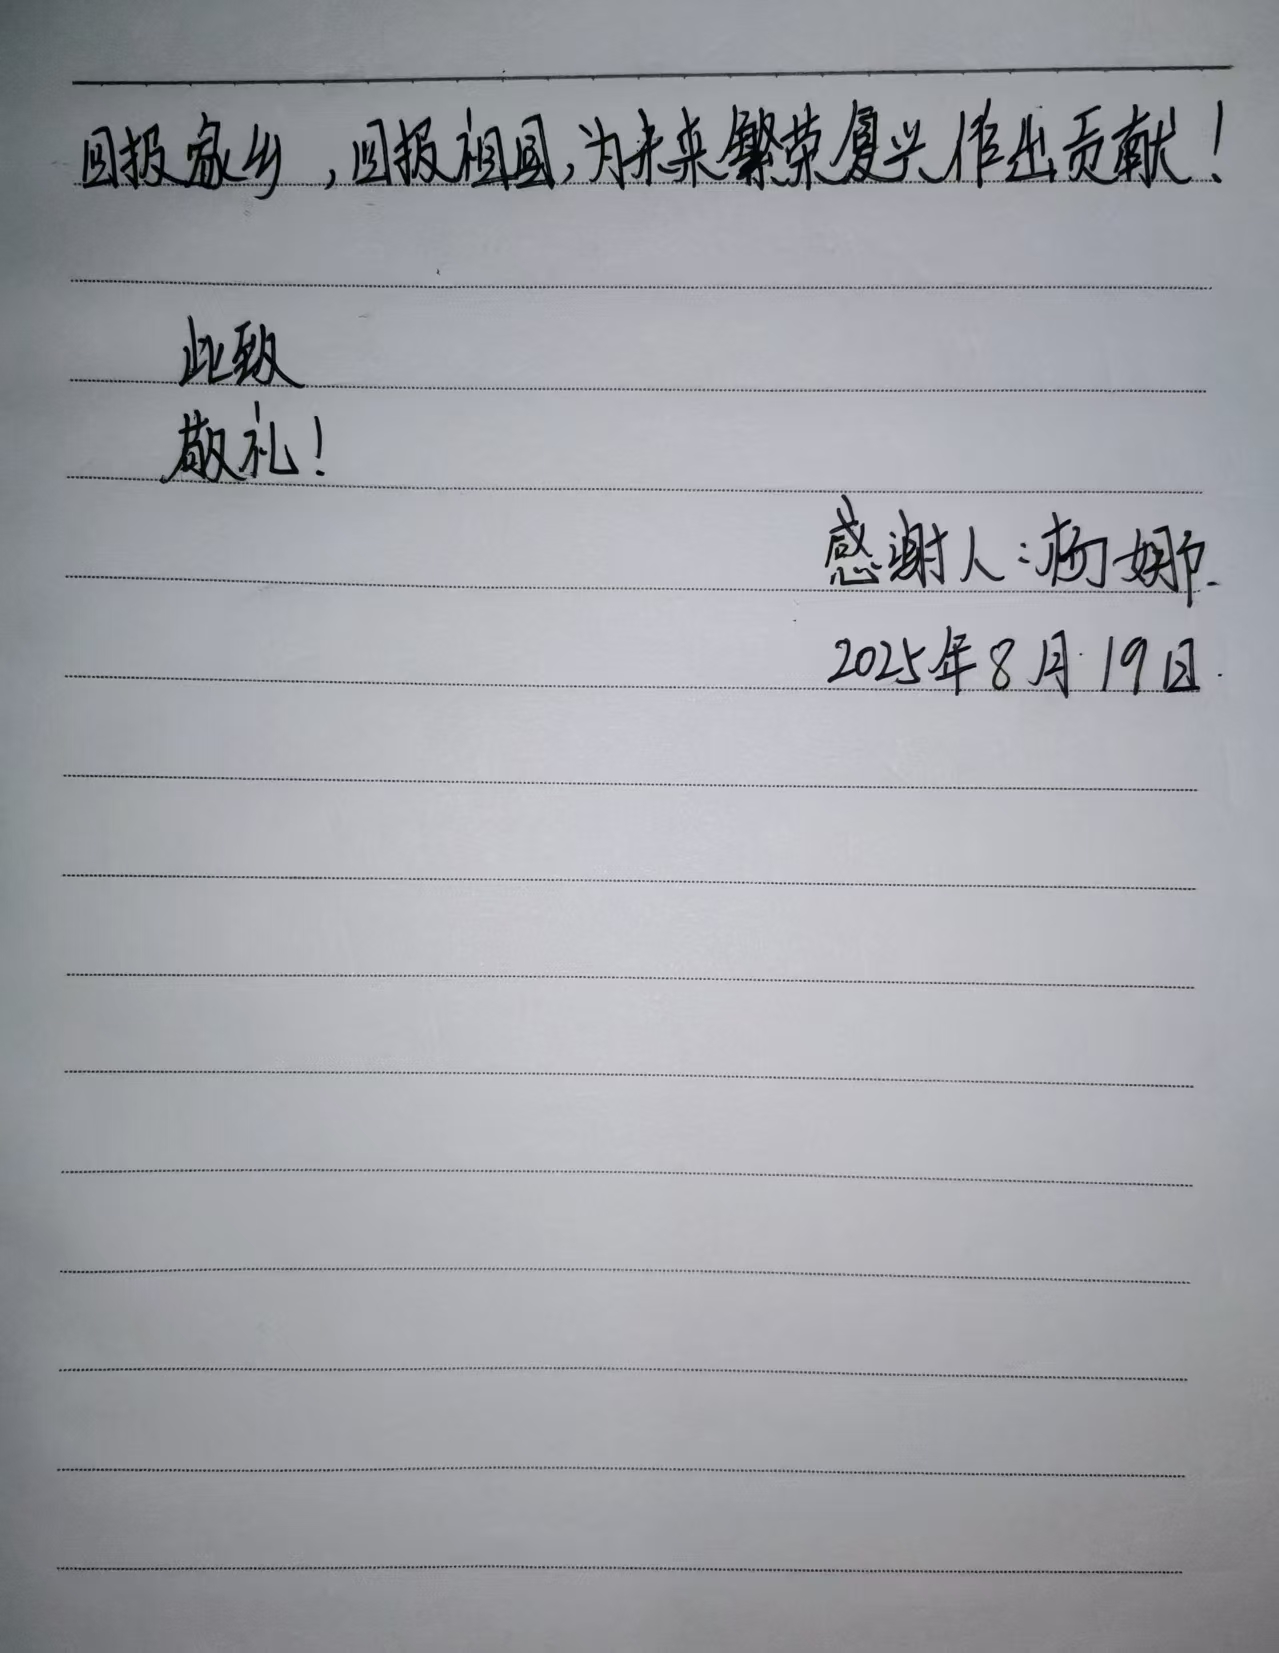 回报家乡，回报祖国，为未来繁荣复兴作出贡献！
此致
敬礼！
感谢人：杨娜.
2025年8月19日.